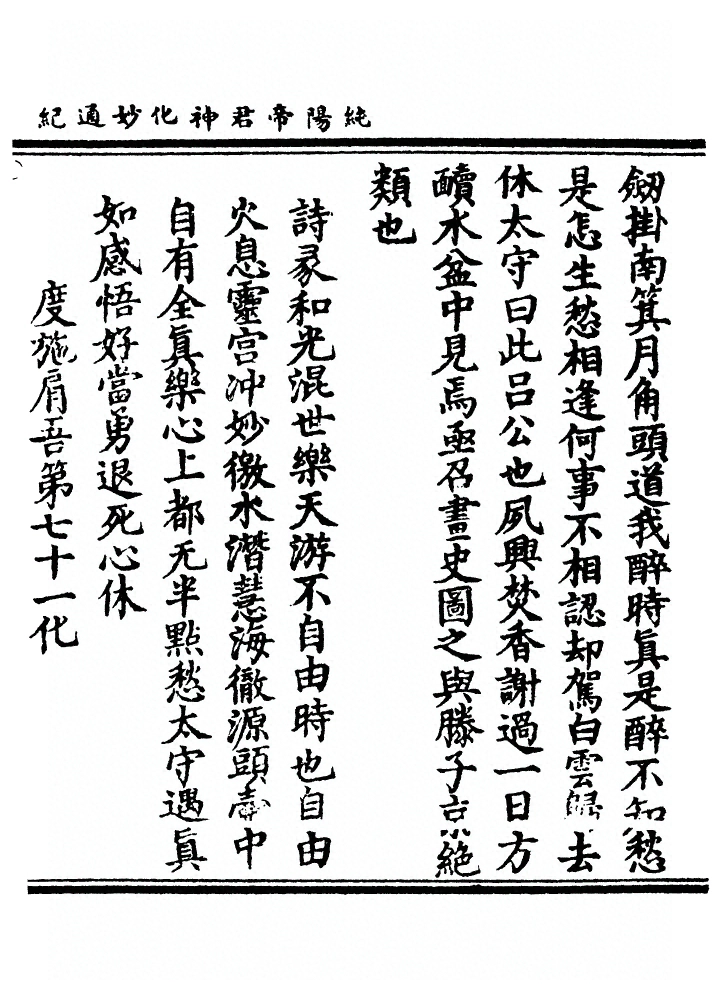 純陽帝君神化妙通紀
劔掛南箕月角頭道我醉時眞是醉不知愁
是怎生愁相逢何事不相認却駕白雲歸去
休太守曰此吕公也夙興焚香謝過一日方
醮水盆中見焉亟召畫史圖之與滕子京絶
類也
詩彖和光混世樂天游不自由時也自由
火息靈宫冲妙徼水潛慧海徹源頭壷中
自有全眞樂心上都无半點愁太守遇眞
如感悟好當勇退死心休
度施肩吾第七十一化